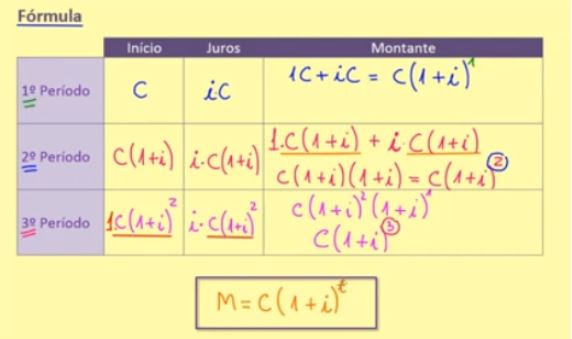 Fórmula
Início Juros Montante
1º Período C iC 1C + iC = C(1+i)¹
2º Período C(1+i) i·C(1+i) 1.C(1+i) + i·C(1+i)
C(1+i)(1+i) = C(1+i)²
3º Período 1C(1+i)² i·C(1+i)² C(1+i)²(1+i)¹
C(1+i)³
M = C(1+i)ᵗ